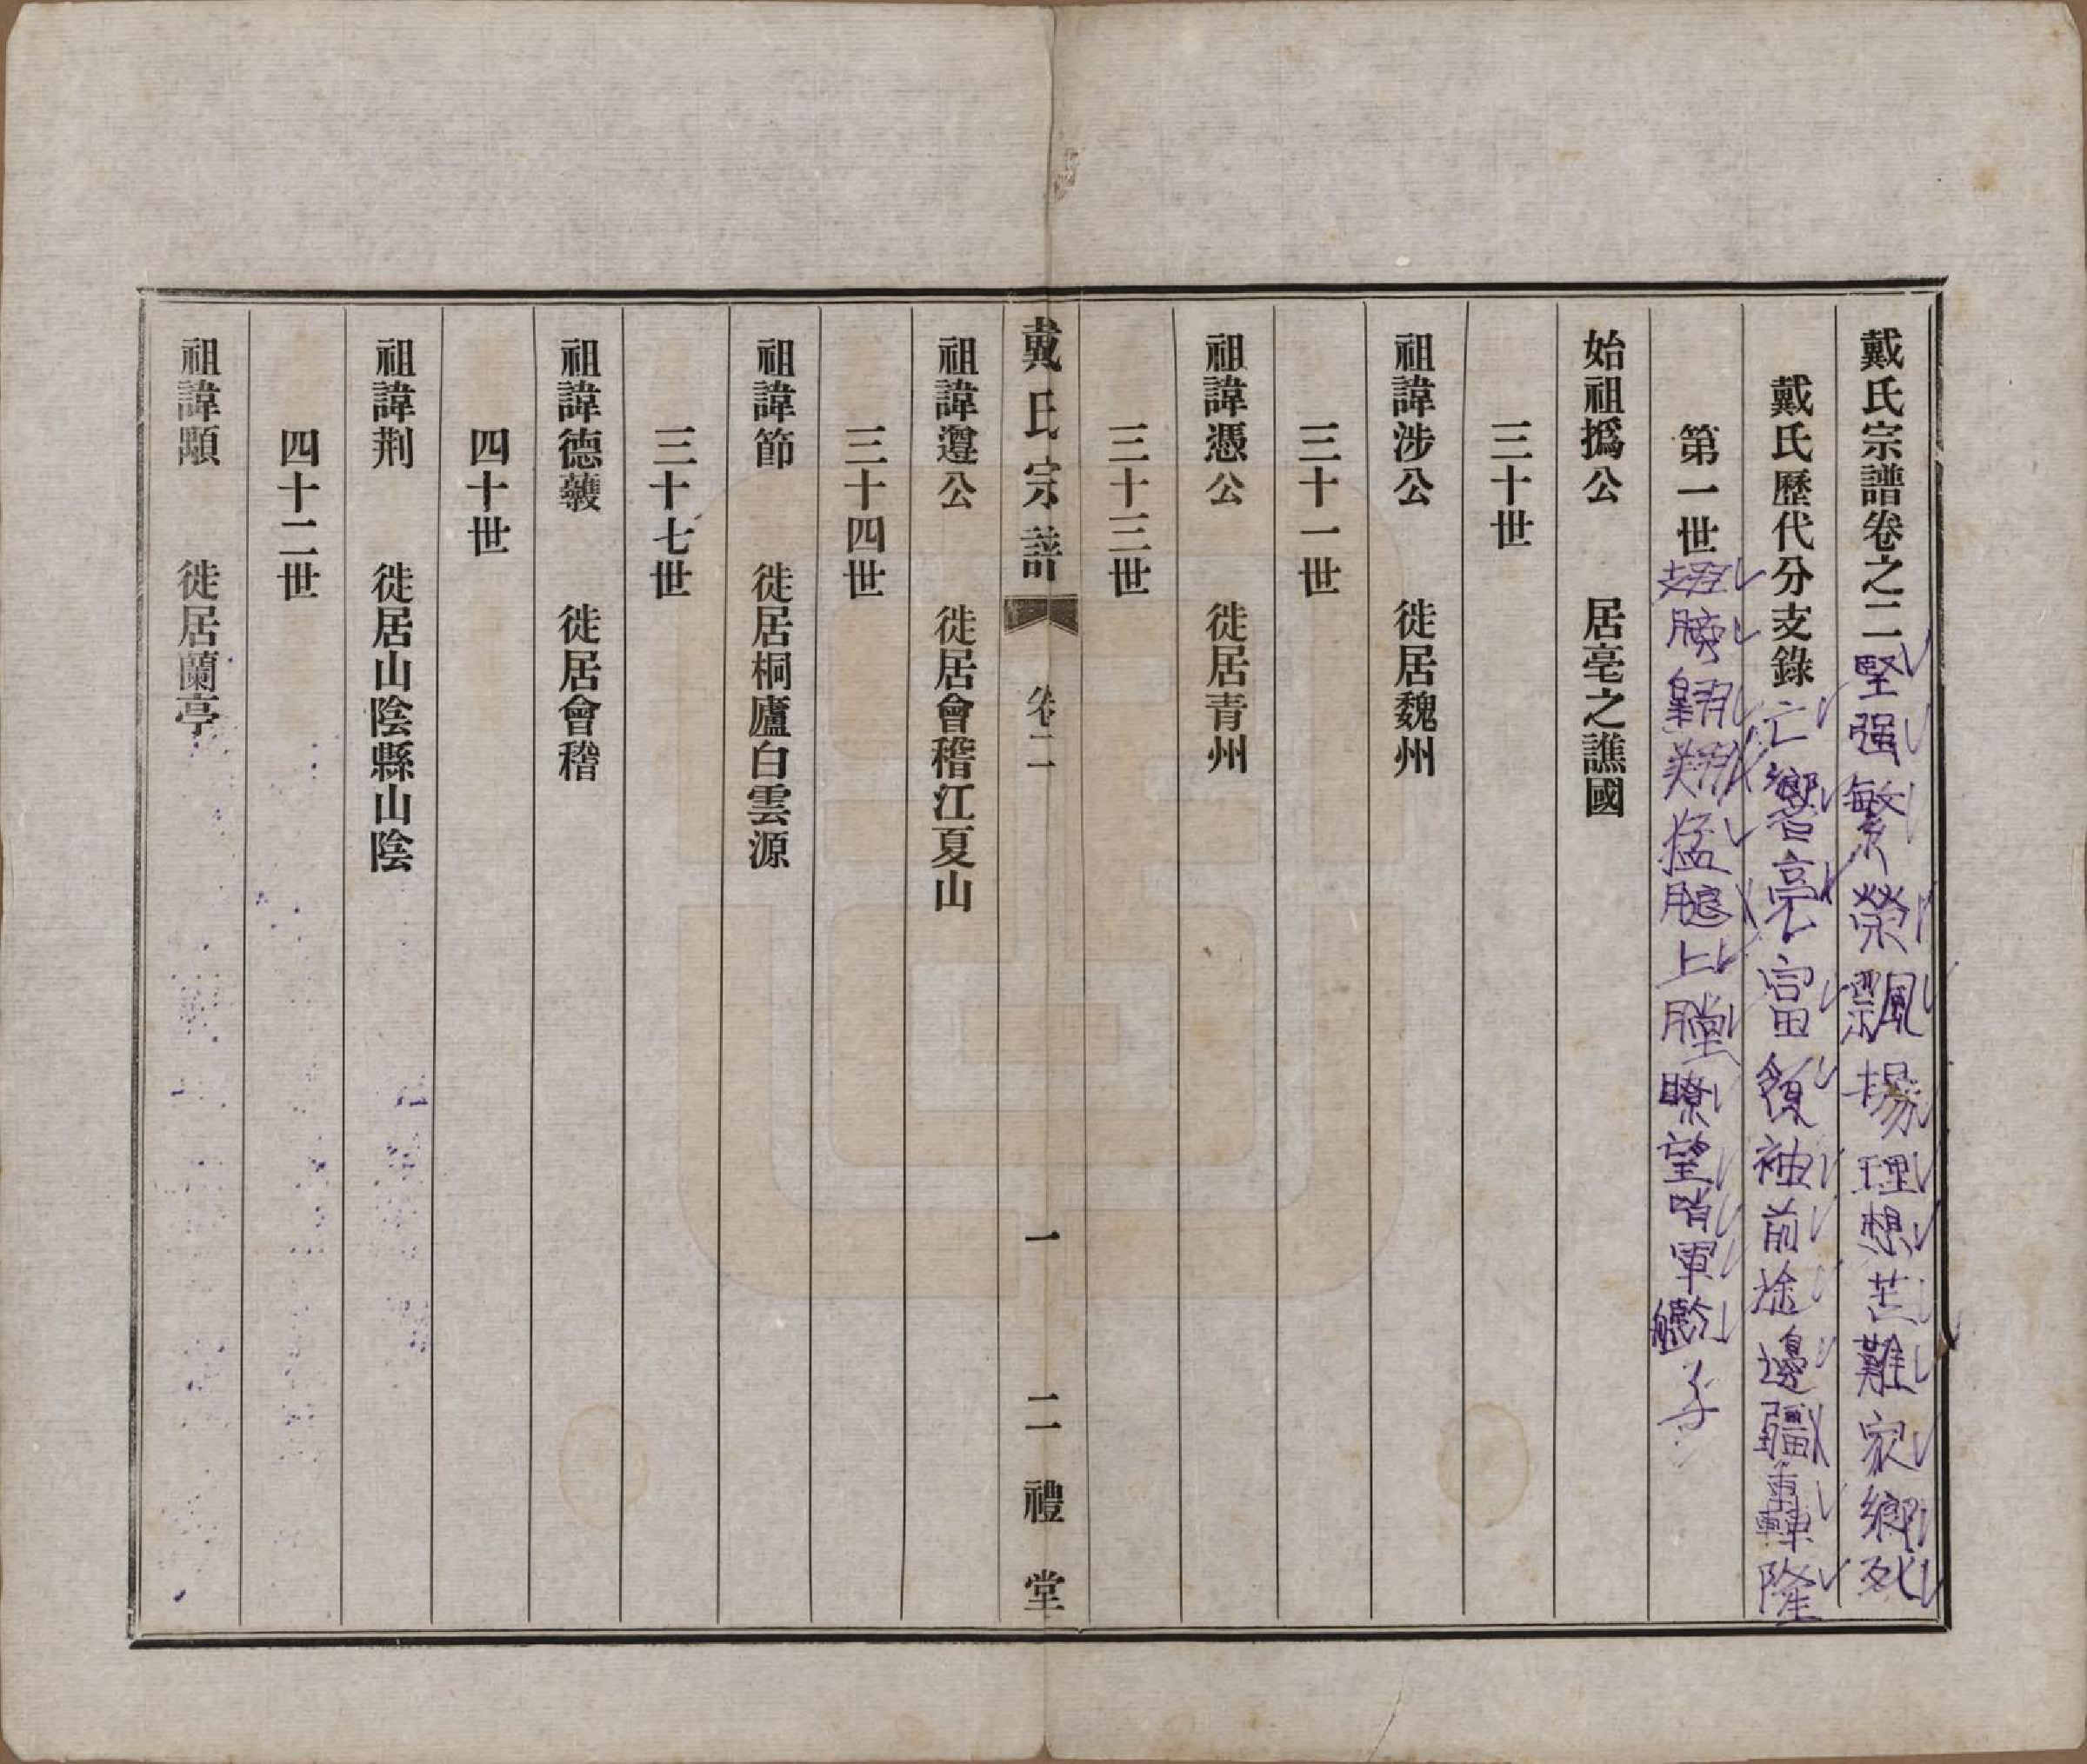 戴氏宗譜卷之二 堅强繁榮飄揚理想芒難家鄉死
戴氏歷代分支錄 亡響亮富領袖前途邊疆轟隆
第一世 翅膀翱翔猛腿上膛瞭望哨軍艦子
始祖撝公 居亳之譙國
三十世
祖諱涉公 徙居魏州
三十一世
祖諱憑公 徙居青州
三十三世
戴氏宗譜 卷二 一 二禮堂
祖諱遵公 徙居會稽江夏山
三十四世
祖諱節 徙居桐廬白雲源
三十七世
祖諱德 徙居會稽
四十世
祖諱荆 徙居山陰縣山陰
四十二世
祖諱顒 徙居蘭亭